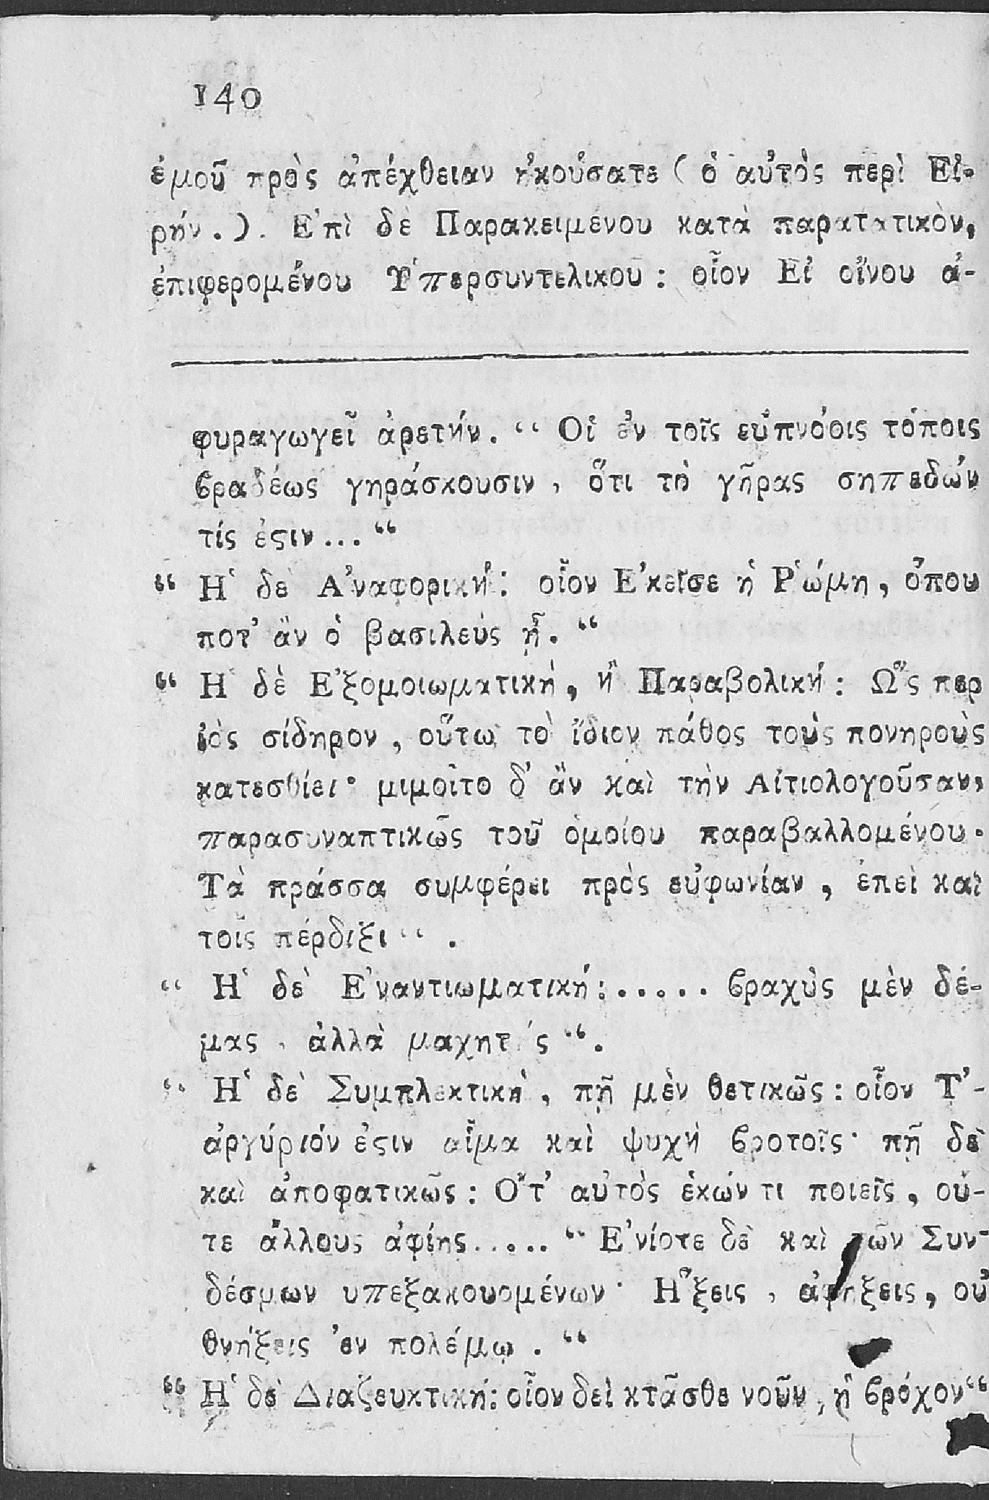 140
ἐμοῦ πρὸς ἀπέχθειαν ἠκούσατε ( ὁ αὐτὸς περὶ Εἰ-
ρήν. ). Ἐπὶ δὲ Παρακειμένου κατὰ παρατατικὸν,
ἐπιφερομένου Ὑπερσυντελικοῦ : οἷον Εἰ οἴνου ἀ-
φυραγωγεῖ ἀρετήν. “ Οἱ ἐν τοῖς εὐπνόοις τόποις
βραδέως γηράσκουσιν, ὅτι τὸ γῆρας σηπεδών
τίς ἐϛιν... “
“ Ἡ δὲ Ἀναφορική : οἷον Ἐκεῖσε ἡ Ῥώμη, ὅπου
ποτ’ ἂν ὁ βασιλεὺς ᾖ. “
“ Ἡ δὲ Ἐξομοιωματικὴ, ἢ Παραβολική : Ὥς περ
ἰὸς σίδηρον, οὕτω τὸ ἴδιον πάθος τοὺς πονηροὺς
κατεσθίει· μιμοῖτο δ’ ἂν καὶ τὴν Αἰτιολογοῦσαν,
παρασυναπτικῶς τοῦ ὁμοίου παραβαλλομένου·
Τὰ πράσσα συμφέρει πρὸς εὐφωνίαν, ἐπεὶ καὶ
τοῖς πέρδιξι “ .
“ Ἡ δὲ Ἐναντιωματική : ..... βραχὺς μὲν δέ-
μας, ἀλλὰ μαχητής “.
“ Ἡ δὲ Συμπλεκτικὴ, πῇ μὲν θετικῶς : οἷον Τ’-
ἀργύριόν ἐϛιν αἷμα καὶ ψυχὴ βροτοῖς· πῇ δὲ
καὶ ἀποφατικῶς : Οὔτ’ αὐτὸς ἑκών τι ποιεῖς, οὔ-
τε ἄλλους ἀφίης..... “ Ἐνίοτε δὲ καὶ τῶν Συν-
δέσμων ὑπεξακουομένων· Ἥξεις, ἀφήξεις, οὐ
θνήξεις ἐν πολέμῳ . “
“ Ἡ δὲ Διαζευκτική : οἷον δεῖ κτᾶσθε νοῦν, ἢ βρόχον “